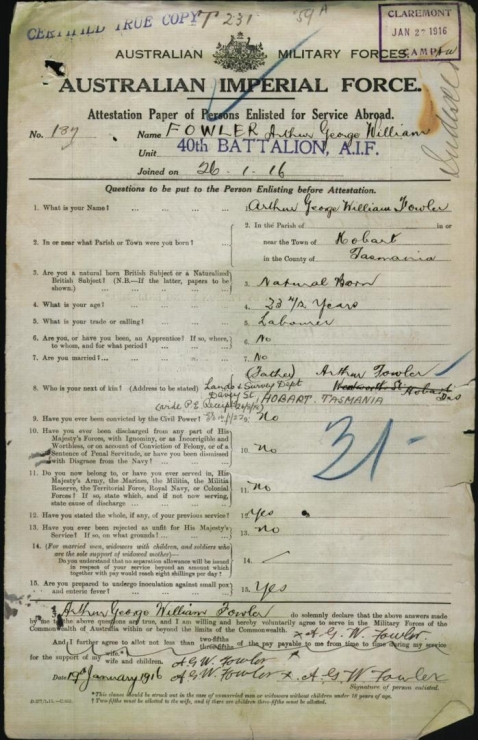 CERTIFIED TRUE COPY T 231 59A
CLAREMONT
JAN 2 1916
CAMP
AUSTRALIAN MILITARY FORCES.
AUSTRALIAN IMPERIAL FORCE.
Attestation Paper of Persons Enlisted for Service Abroad.
No. 187 Name FOWLER Arthur George William
Unit 40th BATTALION, A.I.F.
Joined on 26.1.16
Questions to be put to the Person Enlisting before Attestation.
1. What is your Name? ... 1. Arthur George William Fowler
2. In or near what Parish or Town were you born? ... 2. In the Parish of in or
near the Town of Hobart
in the County of Tasmania
3. Are you a natural born British Subject or a Naturalized
British Subject? (N.B.—If the latter, papers to be
shown.) 3. Natural Born
4. What is your age? ... 4. 23 7/12 Years
5. What is your trade or calling? ... 5. Labourer
6. Are you, or have you been, an Apprentice? If so, where,
to whom, and for what period? ... 6. No
7. Are you married? ... 7. No
(Father) Arthur Fowler
8. Who is your next of kin? (Address to be stated) Lands & Survey Dept
Davey St. Hobart
HOBART. TASMANIA
9. Have you ever been convicted by the Civil Power? 9. No
10. Have you ever been discharged from any part of His
Majesty's Forces, with Ignominy, or as Incorrigible and
Worthless, or on account of Conviction of Felony, or of a
Sentence of Penal Servitude, or have you been dismissed
with Disgrace from the Navy? ... 10. No
31-
11. Do you now belong to, or have you ever served in, His
Majesty's Army, the Marines, the Militia, the Militia
Reserve, the Territorial Force, Royal Navy, or Colonial
Forces? If so, state which, and if not now serving,
state cause of discharge ... 11. No
12. Have you stated the whole, if any, of your previous service? 12. Yes
13. Have you ever been rejected as unfit for His Majesty's
Service? If so, on what grounds? ... 13. No
14. (For married men, widowers with children, and soldiers
who are the sole support of widowed mother—
Do you understand that no separation allowance will be issued
in respect of your service beyond an amount which
together with pay would reach eight shillings per day? 14.
15. Are you prepared to undergo inoculation against small pox
and enteric fever? 15. Yes
I, Arthur George William Fowler do solemnly declare that the above answers made
by me to the above questions are true, and I am willing and hereby voluntarily agree to serve in the Military Forces of the
Commonwealth of Australia within or beyond the limits of the Commonwealth. x A. G. W. Fowler.
And I further agree to allot not less than two-fifths three-fifths of the pay payable to me from time to time during my service
for the support of my wife. wife and children. A G W. Fowler
Date 17th January 1916 A G W. Fowler x. A G W. Fowler
Signature of person enlisted.
*This clause should be struck out in the case of unmarried men or widowers without children under 18 years of age.
† Two-fifths must be allotted to the wife, and if there are children three-fifths must be allotted.